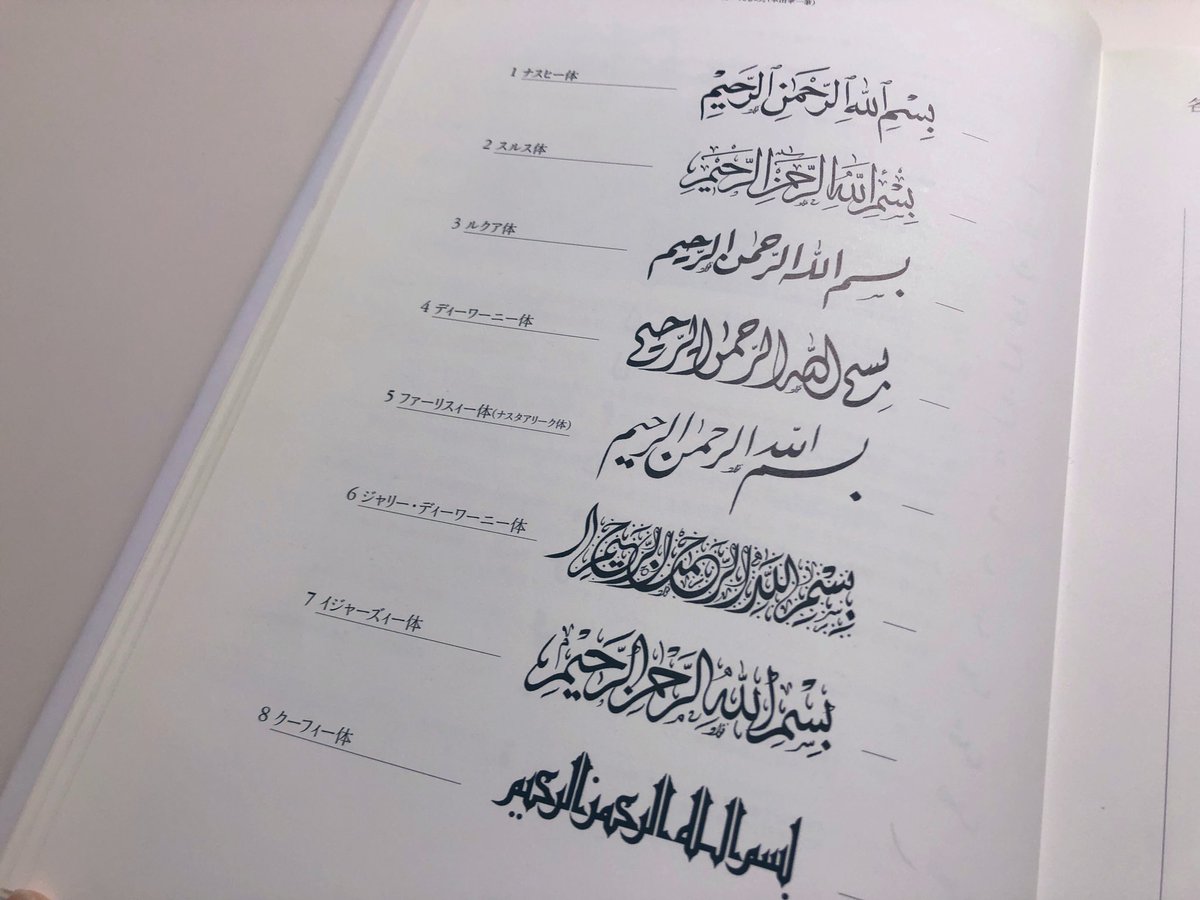 1 ナスヒー体 بِسْمِ ٱللَّهِ ٱلرَّحْمَٰنِ ٱلرَّحِيْمِ
2 スルス体 بِسْمِ اللَّهِ الرَّحْمَٰنِ الرَّحِيْمِ
3 ルクア体 بسم الله الرحمن الرحيم
4 ディーワーニー体 بسم الله الرحمن الرحيم
5 ファーリスィー体(ナスタアリーク体) بسم الله الرحمن الرحيم
6 ジャリー・ディーワーニー体 بِسْمِ اللَّهِ الرَّحْمَٰنِ الرَّحِيْمِ
7 イジャーズィー体 بِسْمِ اللَّهِ الرَّحْمَٰنِ الرَّحِيْمِ
8 クーフィー体 بسم الله الرحمن الرحيم